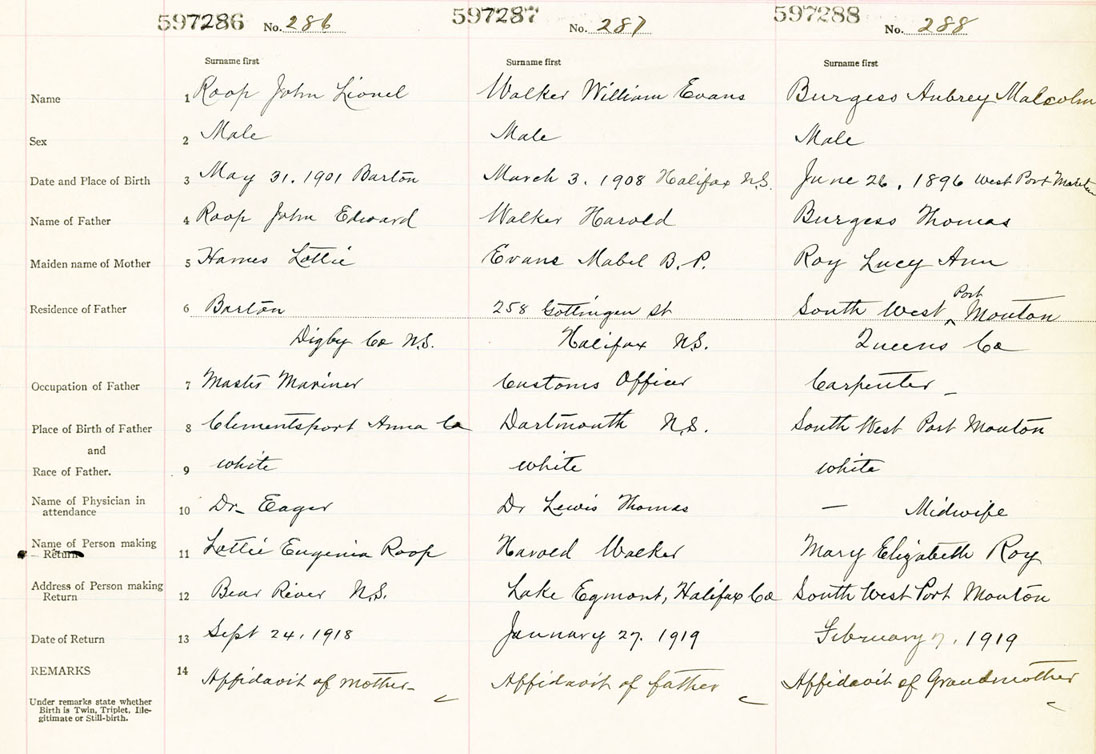 597286 No. 286 597287 No. 287 597288 No. 288
Surname first Surname first Surname first
Name 1 Roop John Lionel Walker William Evans Burgess Aubrey Malcolm
Sex 2 Male Male Male
Date and Place of Birth 3 May 31. 1901 Barton March 3. 1908 Halifax N.S. June 26, 1896 West Port
Name of Father 4 Roop John Edward Walker Harold Burgess Thomas
Maiden name of Mother 5 Lottie Evans Mabel B. P. Roy Lucy Ann
Port
Residence of Father 6 Barton 258 Gottingen St South West ‸ Mouton
Digby Co N.S. Halifax N.S. Queens Co
Occupation of Father 7 Master Mariner Customs Officer Carpenter
Place of Birth of Father 8 Clementsport Anna Co Dartmouth N.S. South West Port Mouton
and
Race of Father. 9 white white white
Name of Physician in
attendance 10 Dr Eager Dr Lewis Thomas — Midwife
Name of Person making
Return 11 Lottie Eugenia Roop Harold Walker Mary Elizabeth Roy
Address of Person making
Return 12 Bear River N.S. Lake Egmont, Halifax Co South West Port Mouton
Date of Return 13 Sept 24, 1918 January 27. 1919 February 7, 1919
REMARKS 14 Affidavit of mother Affidavit of father Affidavit of Grandmother
Under remarks state whether
Birth is Twin, Triplet, Ille-
gitimate or Still-birth.